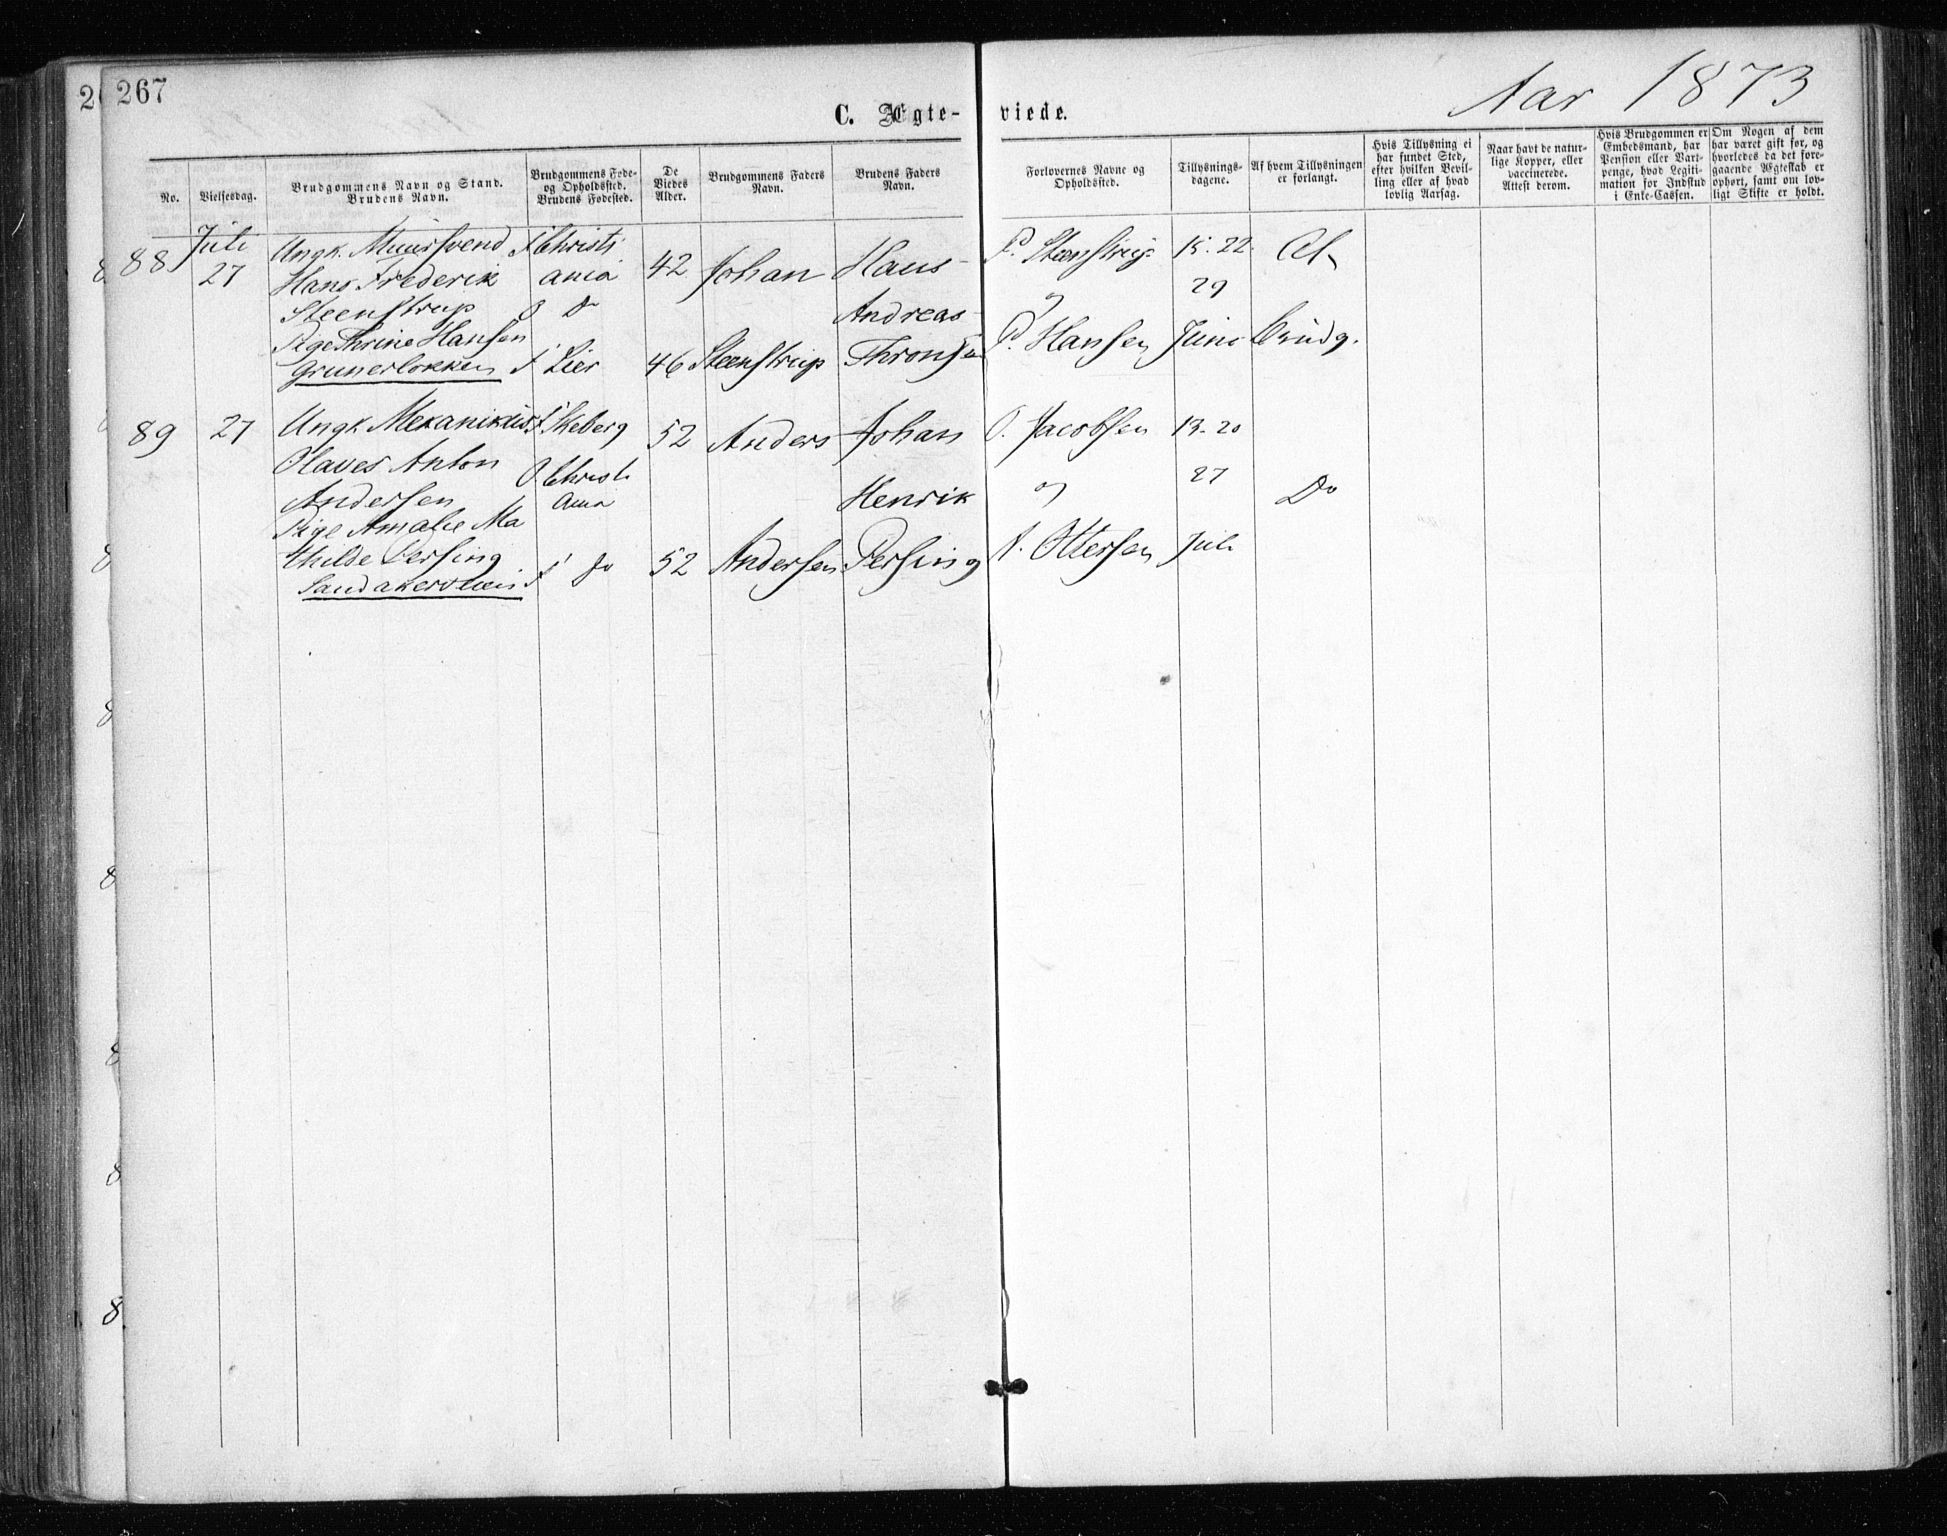 267
C. Ægte-
viede.
Aar 1873
No.
Vielsesdag.
Brudgommens Navn og Stand.
Brudens Navn.
Brudgommens Føde-
og Opholdssted.
Brudens Fødested.
De
Viedes
Alder.
Brudgommens Faders
Navn.
Brudens Faders
Navn.
Forlovernes Navne og
Opholdssted.
Tillysnings-
dagene.
Af hvem Tillysningen
er forlangt.
Hvis Tillysning ei
har fundet Sted,
efter hvilken Bevil-
ling eller af hvad
lovlig Aarsag.
Naar havt de natur-
lige Kopper, eller
vaccinerede.
Attest derom.
Hvis Brudgommen er
Embedsmand, har
Pension eller Vart-
penge, hvad Legiti-
mation for Indskud
i Enke-Cassen.
Om Nogen af dem
har været gift før, og
hvorledes da det fore-
gaaende Ægteskab er
ophørt, samt om lov-
ligt Skifte er holdt.
88
Juli
27
Ungk. Muursvend
Hans Frederik
Steenstrup
Pige Thrine Hansen
Grunerløkken
F Christi
ania
O Do
F Lier
42
46
Johan
Steenstrup
Hans
Andreas
Thronsen
P. Steenstrup
og
P. Hansen
15. 22.
29
Juni
Af
Brudg.
89
27
Ungk. Mekanikus
Olaves Anton
Andersen
Pige Amalie Ma
thilde Persing
Sandakerveien
F Skeberg
O Christi
ania
F Do
52
52
Anders
Andersen
Johan
Henrik
Persing
O. Jacobsen
og
A. Ottersen
13. 20
27
Juli
Do